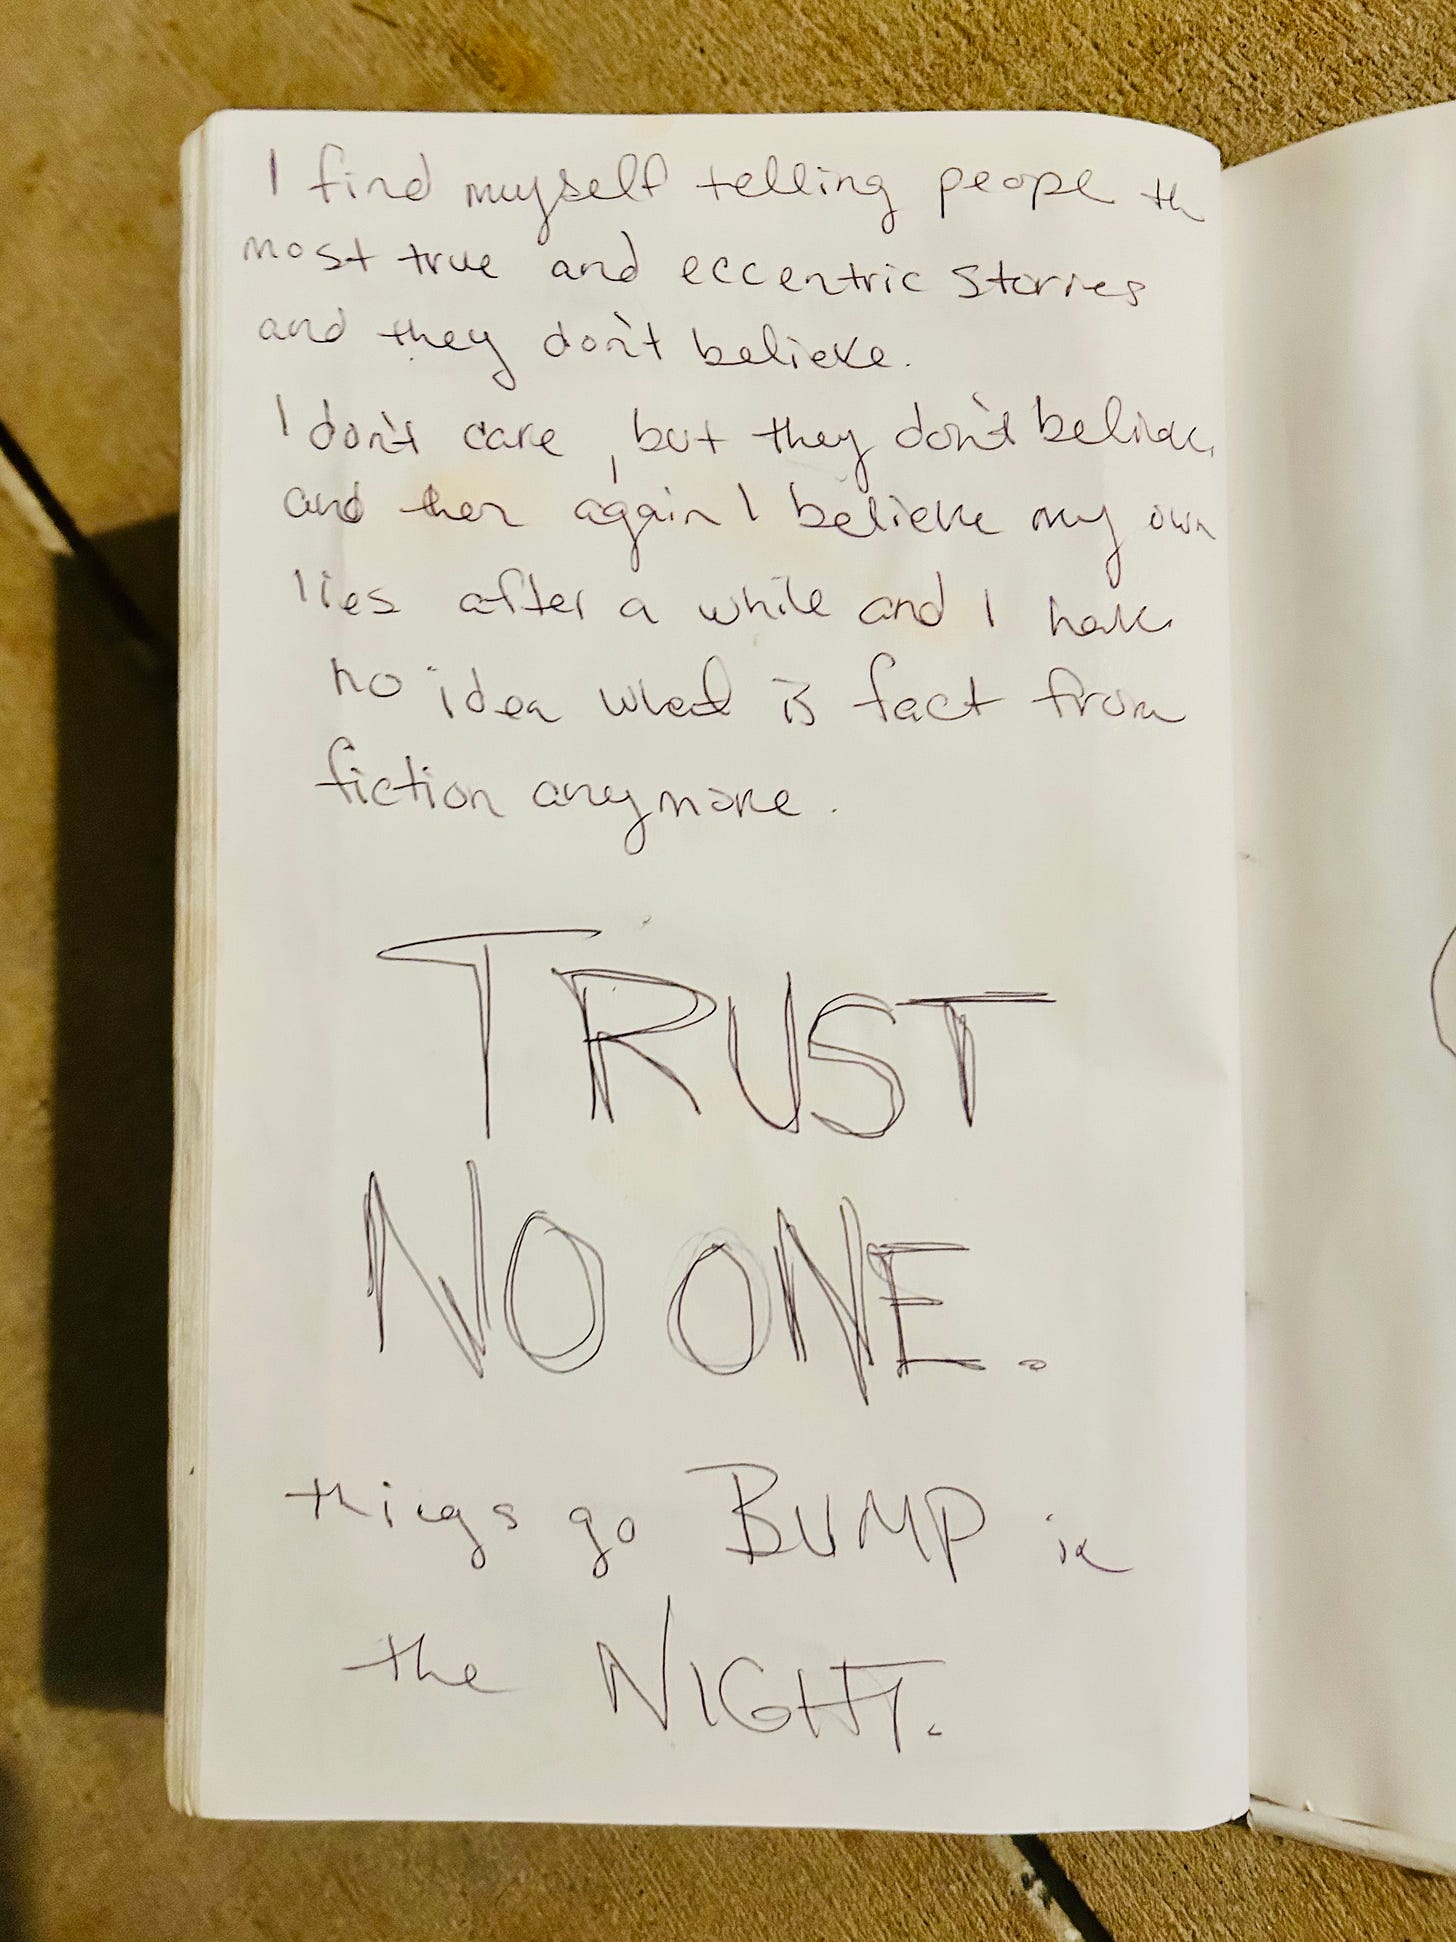 I find myself telling people th
most true and eccentric stories
and they don't believe.
I don't care, but they don't believe,
and then again I believe my own
lies after a while and I have
no idea what is fact from
fiction anymore.
TRUST
NO ONE.
things go BUMP in
the NIGHT.